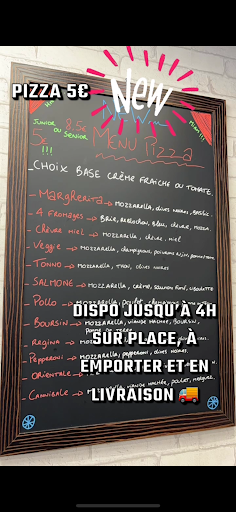 New
PIZZA 5€
JUNIOR 8.5€
5€ ou SENIOR
!!!
MENU Pizza
MIAM !!!
CHOIX BASE CRÈME FRAICHE OU TOMATE.
- MARGHERITA → MOZZARELLA, olives noires, Basilic.
- 4 FROMAGES → Brie, reblochon, bleu, chèvre, mozza
- CHÈVRE MIEL → MOZZARELLA, chèvre, miel
- VEGGIE → MOZZARELLA, champignons, poivrons
- TONNO → MOZZARELLA, thon, olives noires
- SALMONE → MOZZARELLA, crème, saumon fumé, ciboulette
- POLLO → MOZZARELLA, poulet, champignons
- BOURSIN → MOZZARELLA, viande hachée, Boursin,
- REGINA → MOZZARELLA,
- PEPPERONI → MOZZARELLA, pepperoni, olives noires.
- ORIENTALE → MOZZARELLA,
- CANNIBALE → MOZZARELLA, viande hachée, poulet, merguez.
DISPO JUSQU'À 4H
SUR PLACE, À
EMPORTER ET EN
LIVRAISON 🚚